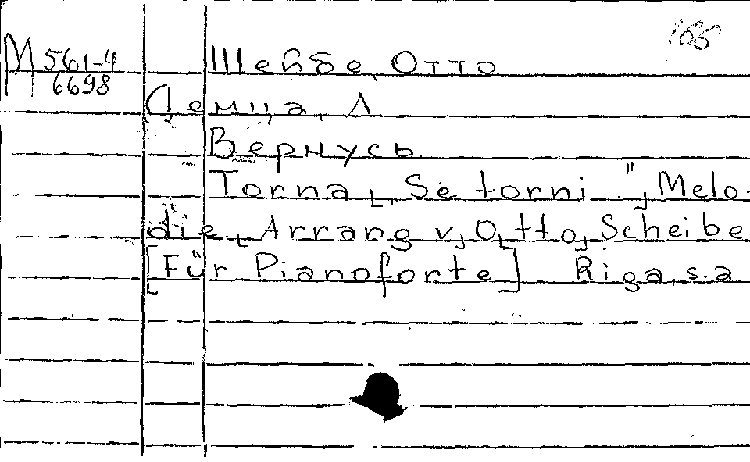 165
М 561-4
6698
Шейбе, Отто
Денца, Л
Вернусь
Torna, Se torni", Melo-
die, Arrang v, Otto, Scheibe
[Für Pianoforte] Riga, s.a